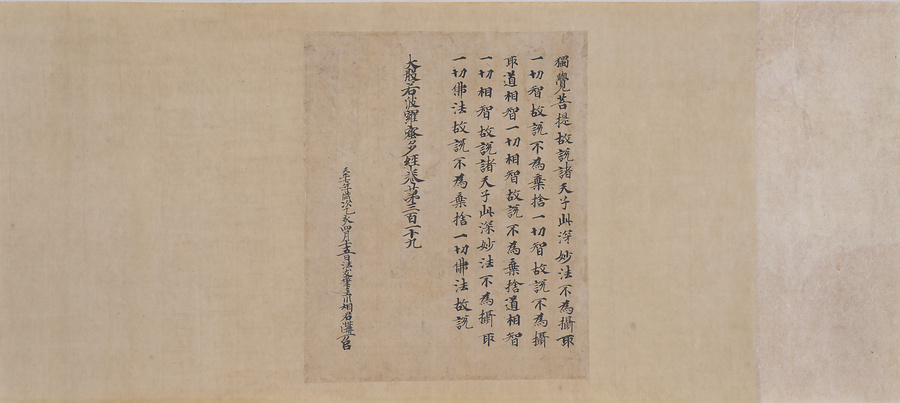 獨覺菩提故說諸天子此深妙法不為攝取
一切智故說不為棄捨一切智故說不為攝
取道相智一切相智故說不為棄捨道相智
一切相智故說諸天子此深妙法不為攝取
一切佛法故說不為棄捨一切佛法故說
大般若波羅蜜多經卷第三百一十九
天平十七年歲次乙亥四月十五日法